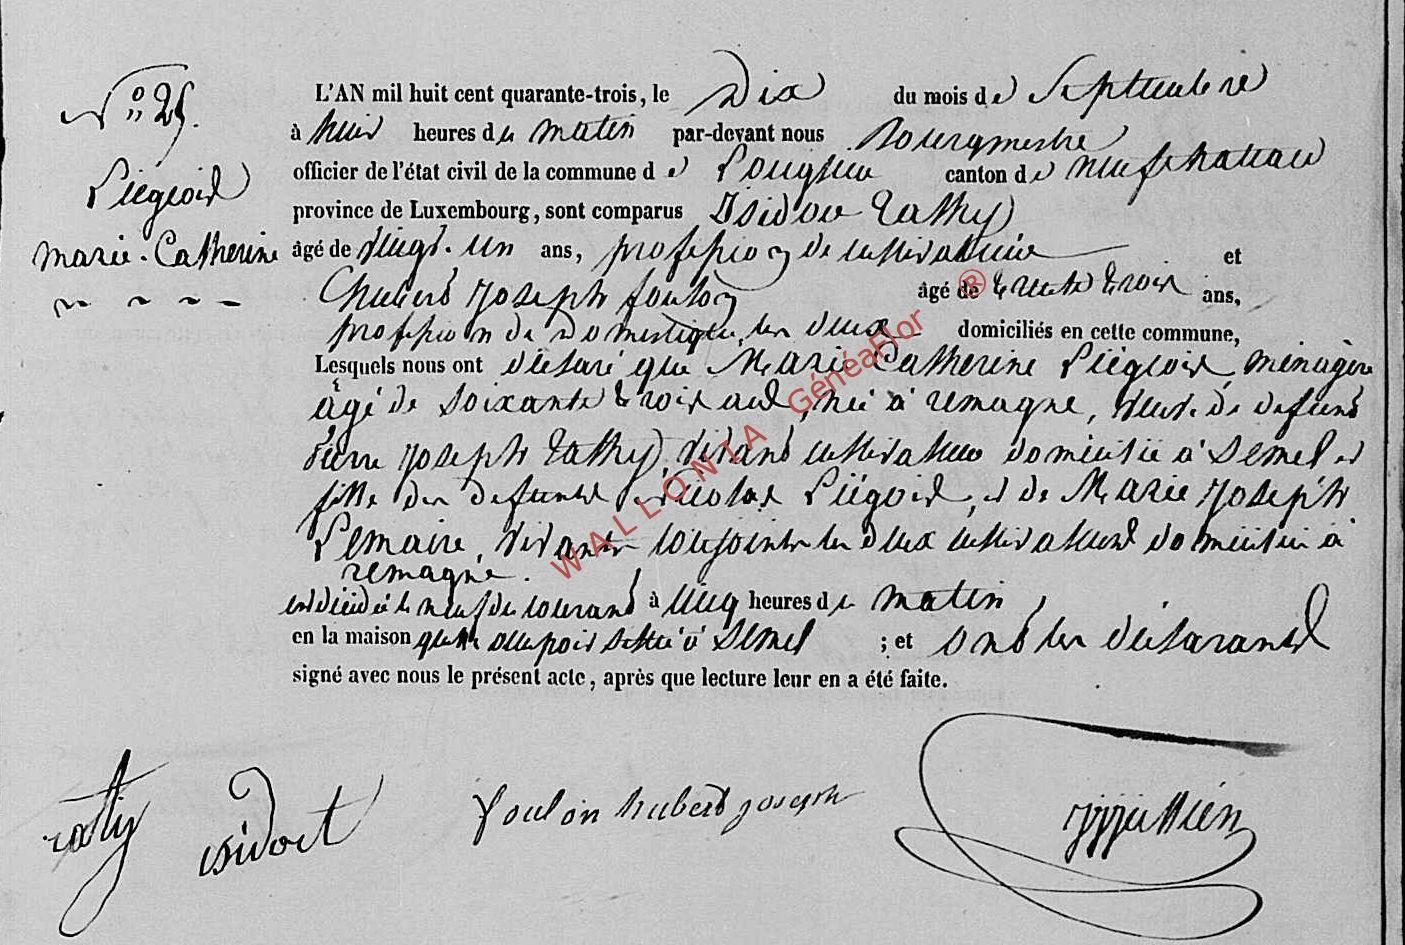 N° 25.
Piégeois
Marie-Catherine
L'AN mil huit cent quarante-trois, le Dix du mois de Septembre
à huit heures du matin par-devant nous Bourgmestre
officier de l'état civil de la commune de canton de neufchateau
province de Luxembourg, sont comparus Isidore Lathy
âgé de vingt-un ans, profession de cultivateur et
hubert Joseph foulon âgé de trente trois ans,
profession de Domestique, les deux domiciliés en cette commune,
Lesquels nous ont déclaré que Marie Catherine ménagère
âgé de soixante trois ans, née à remagne, veuve de défunt
Pierre Joseph Lathy, vivant cultivateur domicilié à Semel et
fille des défunts Nicolas et de Marie Joseph
Lemaire, vivants conjoints les deux cultivateurs domiciliés à
remagne.
est décédée le neuf du courant à cinq heures du matin,
en la maison qu'elle occupoit située à Semel ; et ont les déclarants
signé avec nous le présent acte, après que lecture leur en a été faite.
isidort
foulon hubert joseph
WALLONIA GénéaFlor ®